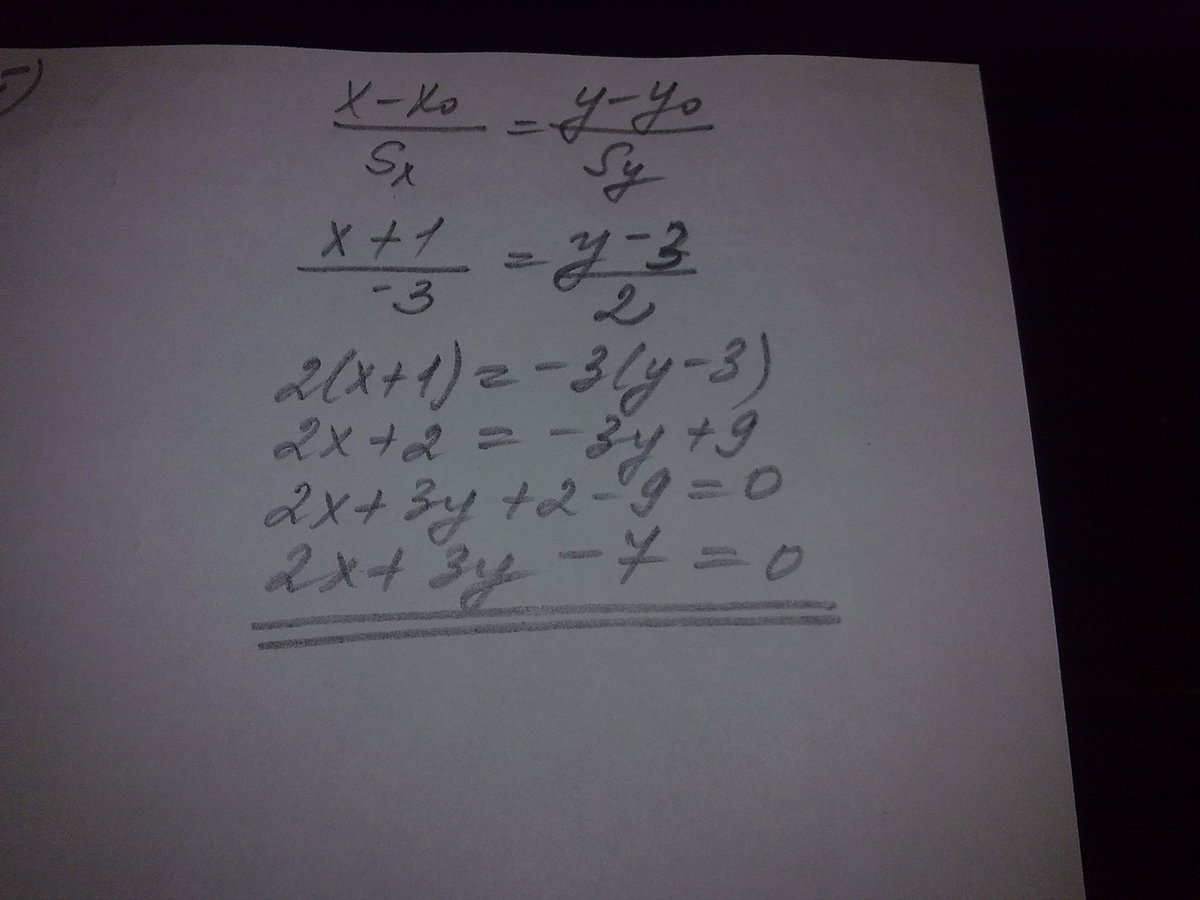 5)
x-x₀/Sx = y-y₀/Sy
x+1/-3 = y-3/2
2(x+1)=-3(y-3)
2x+2 = -3y+9
2x+3y+2-9=0
2x+3y-7=0